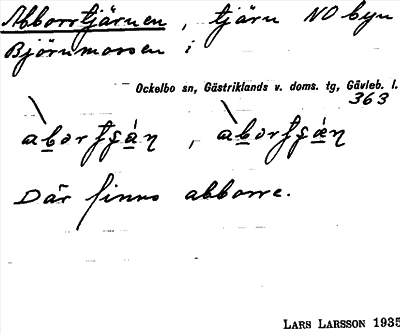 Abborrtjärnen, tjärn NO byn
Björnmossen i
Ockelbo sn, Gästriklands v. doms. tg, Gävleb. l.
363
Där finns abborre.
LARS LARSSON 1935